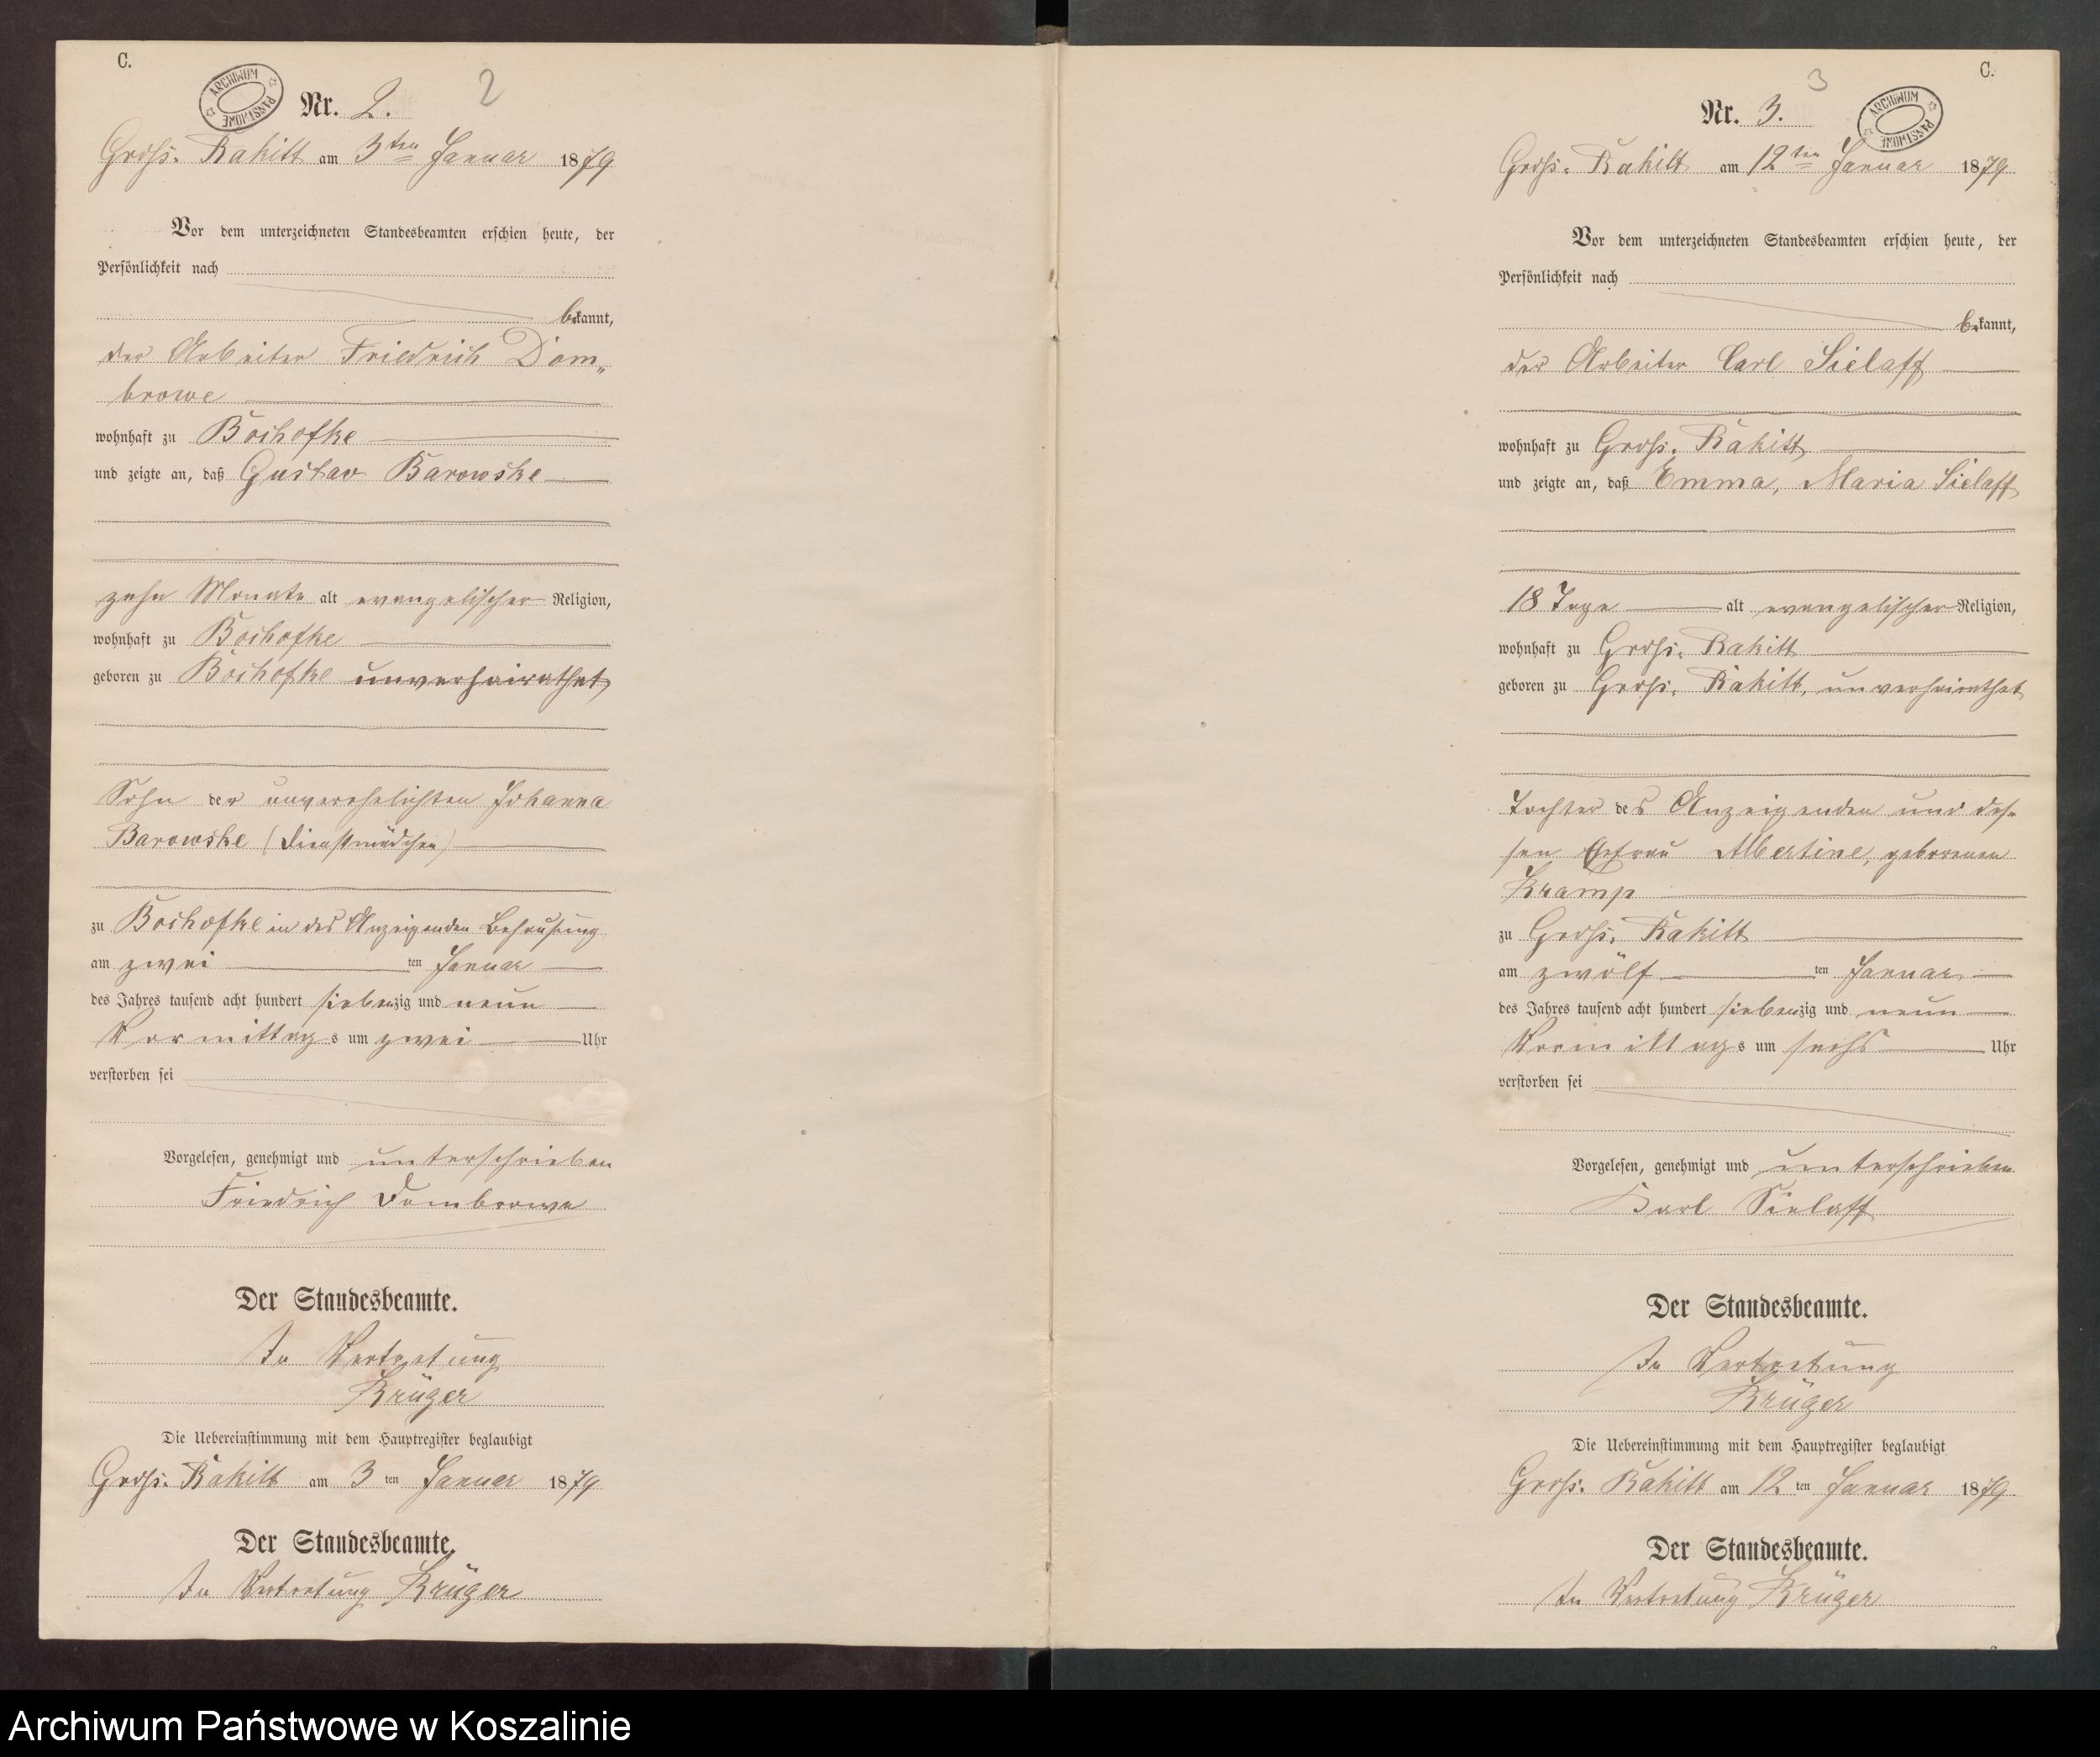 C.
ARCHIWUM PAŃSTWOWE
Nr. 2.
2
Gross. Rakitt am 3ten Januar 1879
Vor dem unterzeichneten Standesbeamten erschien heute, der
Persönlichkeit nach
bekannt,
der Arbeiter Friedrich Dom„
browe
wohnhaft zu Bochofke
und zeigte an, daß Gustav Barowske
zehn Monate alt evangelischer Religion,
wohnhaft zu Bochofke
geboren zu Bochofke unverheirathet
Sohn der unverehelichten Johanna
Barowske (Dienstmädchen)
zu Bochofke in des Anzeigenden Behausung
am zwei ten Januar
des Jahres tausend acht hundert siebenzig und neun
Vormittags um zwei Uhr
verstorben sei
Vorgelesen, genehmigt und unterschrieben
Friedrich Dombrowe
Der Standesbeamte.
In Vertretung
Krüger
Die Uebereinstimmung mit dem Hauptregister beglaubigt
Gross. Rakitt am 3 ten Januar 1879
Der Standesbeamte.
In Vertretung Krüger
C.
3
Nr. 3.
ARCHIWUM PAŃSTWOWE
Gross. Rakitt am 12ten Januar 1879
Vor dem unterzeichneten Standesbeamten erschien heute, der
Persönlichkeit nach
bekannt,
der Arbeiter Carl Sielaff
wohnhaft zu Gross. Rakitt
und zeigte an, daß Emma, Maria Sielaff
18 Tage alt evangelischer Religion,
wohnhaft zu Gross. Rakitt
geboren zu Gross. Rakitt, unverheirathet
Tochter des Anzeigenden und des-
sen Ehefrau Albertine, geborenen
Kramp
zu Gross. Rakitt
am zwölf ten Januar
des Jahres tausend acht hundert siebenzig und neun
Vormittags um sechs Uhr
verstorben sei
Vorgelesen, genehmigt und unterschrieben
Karl Sielaff
Der Standesbeamte.
In Vertretung
Krüger
Die Uebereinstimmung mit dem Hauptregister beglaubigt
Gross. Rakitt am 12 ten Januar 1879
Der Standesbeamte.
In Vertretung Krüger
Archiwum Państwowe w Koszalinie